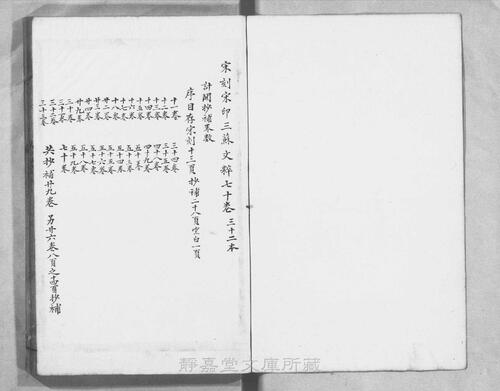 宋刻宋印三蘇文粹七十卷 三十二本
計開抄補卷数
序目存宋刻十三頁抄補二十八頁空白一頁
十一卷 三十四卷
十二卷 三十五卷
十三卷 四十八卷
十四卷 四十九卷
十五卷 五十卷
十六卷 五十三卷
十七卷 五十四卷
十八卷 五十五卷
廿二卷 五十六卷
廿三卷 五十七卷
廿四卷 五十八卷
廿九卷 五十九卷
三十卷 七十卷
三十一卷
三十二卷
三十三卷
共抄補廿九卷 另廿六卷八頁之十四頁抄補
靜嘉堂文庫所藏